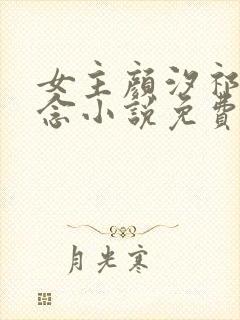 女主顏汐祁
念小說免費
月光寒